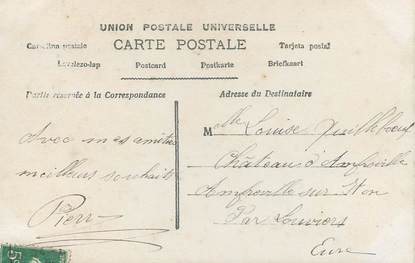 UNION POSTALE UNIVERSELLE
CARTE POSTALE
Cartolina postale Tarjeta postal
Levelezo-lap Postcard Postkarte Briefkaart
Partie réservée à la Correspondance Adresse du Destinataire
Avec mes amitiés
meilleurs souhaits
Pierr
Melle Louise Quillebeuf
Château d'Amfreville
Amfreville sur Iton
Par Louviers
Eure
5